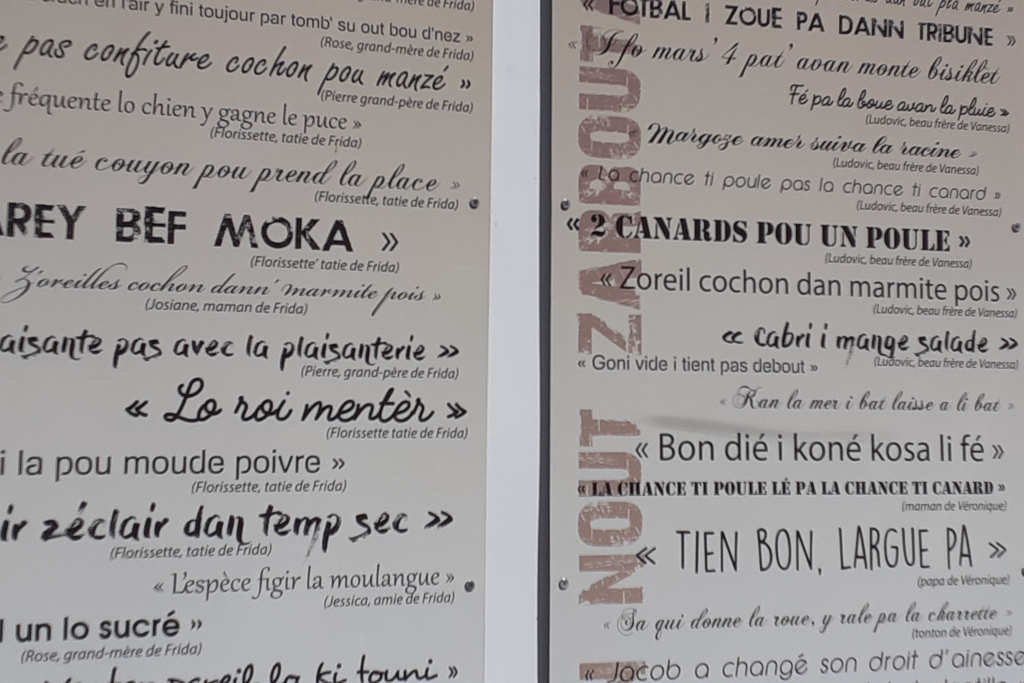 en l'air y fini toujour par tomb' su out bou d'nez »
(Rose, grand-mère de Frida)
pas confiture cochon pou manzé »
(Pierre grand-père de Frida)
fréquente lo chien y gagne le puce »
(Florissette, tatie de Frida)
la tué couyon pou prend la place »
(Florissette, tatie de Frida)
AREY BEF MOKA »
(Florissette' tatie de Frida)
Z'oreilles cochon dann' marmite pois »
(Josiane, maman de Frida)
aisante pas avec la plaisanterie »
(Pierre, grand-père de Frida)
« Lo roi mentèr »
(Florissette tatie de Frida)
i la pou moude poivre »
(Florissette, tatie de Frida)
ir zéclair dan temp sec »
(Florissette, tatie de Frida)
« L'espèce figir la moulangue »
(Jessica, amie de Frida)
un lo sucré »
(Rose, grand-mère de Frida)
pareil la ki touni »
NOUT ZARBOUT
« FOTBAL I ZOUE PA DANN TRIBUNE »
« I fo mars' 4 pat' avan monte bisiklèt
Fé pa la boue avan la pluie »
(Ludovic, beau frère de Vanessa)
Margoze amer suiva la racine »
(Ludovic, beau frère de Vanessa)
« La chance ti poule pas la chance ti canard »
(Ludovic, beau frère de Vanessa)
« 2 CANARDS POU UN POULE »
(Ludovic, beau frère de Vanessa)
« Zoreil cochon dan marmite pois »
(Ludovic, beau frère de Vanessa)
« Cabri i mange salade »
(Ludovic, beau frère de Vanessa)
« Goni vide i tient pas debout »
« Kan la mer i bat laisse a li bat »
« Bon dié i koné kosa li fé »
« LA CHANCE TI POULE LÉ PA LA CHANCE TI CANARD »
(maman de Véronique)
« TIEN BON, LARGUE PA »
(papa de Véronique)
« Sa qui donne la roue, y rale pa la charrette »
(tonton de Véronique)
« Jacob a changé son droit d'ainesse